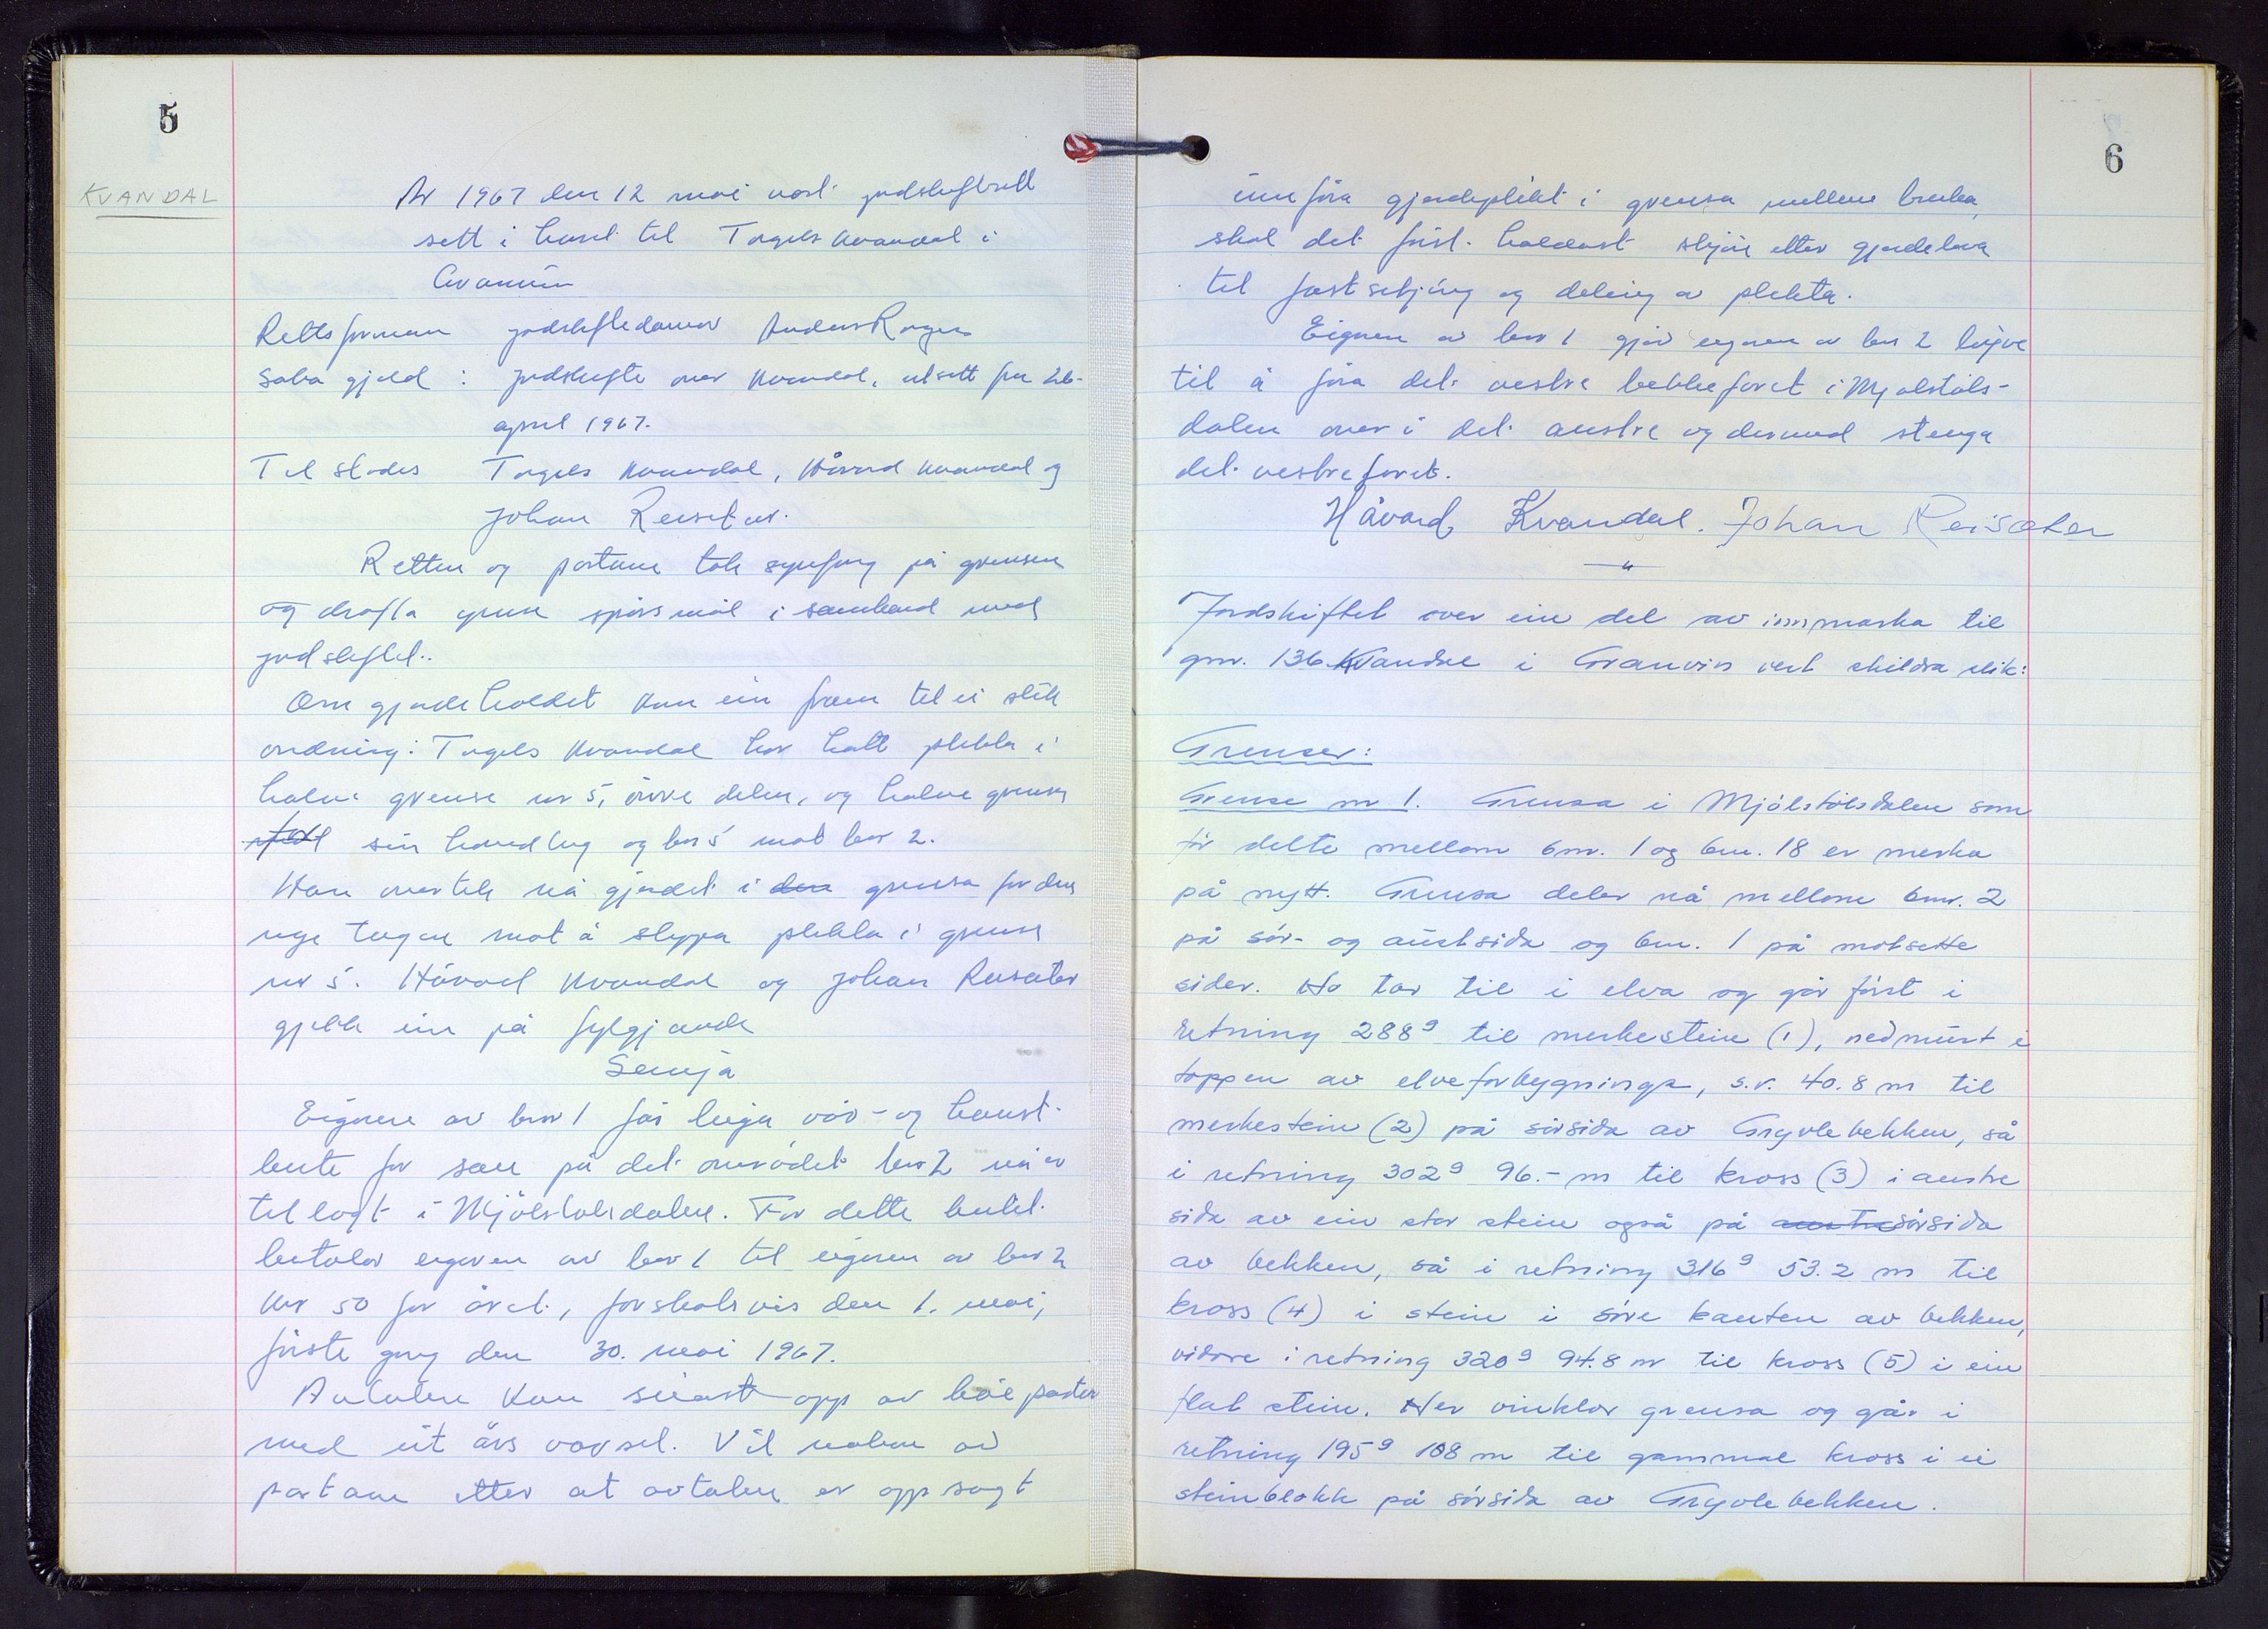 5
KVANDAL
År 1967 den 12 mai vart jordskifterett
sett i huset til Torgils Kvandal i
Granvin
Rettsformann jordskiftedomar Anders Ragne
Saka gjeld : Jordskifte over Kvandal, utsett frå 26.
april 1967.
Til stades Torgils Kvandal, Håvard Kvandal og
Johan Reisæter.
Retten og partane tok synfaring på grensene
og drøfta ymse spørsmål i samband med
jordskiftet.
Om gjerdehaldet kom ein fram til ei slik
ordning: Torgils Kvandal har hatt plikta i
halve grense nr 5, øvre delen, og halve grensa
sin havnehag og bnr 5 mot bnr 2.
Han overtek nå gjerdet i den grensa for den
nye teigen mot å sleppa plikta i grense
nr 5. Håvard Kvandal og Johan Reisæter
gjekk inn på fylgjande
Semja
Eigaren av bnr 1 får leiga vår- og haust-
beite for sau på det området bnr 2 nå er
tillagt i Mjølstølsdalen. For dette beitet
betalar eigaren av bnr 1 til eigaren av bnr 2
kr 50 for året, forskotsvis den 1. mai,
første gong den 30. mai 1967.
Avtalen kan seiast opp av båe partar
med eit års varsel. Vil nokon av
partane etter at avtalen er oppsagt
6
innføra gjerdeplikt i grensa mellom bruka,
skal det først haldast skjøn etter gjerdelova
til fastsetjing og deling av plikta.
Eigaren av bnr 1 gjev eigaren av bnr 2 løyve
til å føra det vestre bekkefaret i Mjølstøls-
dalen over i det austre og dermed stenga
det vestre faret.
Håvard Kvandal. Johan Reisæter
— " —
Jordskiftet over ein del av innmarka til
gnr. 136 Kvandal i Granvin vert skildra slik:
Grenser:
Grense nr 1. Grensa i Mjølstølsdalen som
før delte mellom bnr. 1 og bnr. 18 er merka
på nytt. Grensa deler nå mellom bnr. 2
på sør- og austsida og bnr. 1 på motsette
sider. Ho tar til i elva og går først i
retning 288g til merkestein (1), nedmurt i
toppen av elveforbygninga, s.r. 40.8 m til
merkestein (2) på sørsida av Gryvlebekken, så
i retning 302g 96.- m til kross (3) i austre
sida av ein stor stein også på austre sørsida
av bekken, så i retning 316g 53.2 m til
kross (4) i stein i søre kanten av bekken,
vidare i retning 320g 94.8 m til kross (5) i ein
flat stein. Her vinklar grensa og går i
retning 195g 108 m til gammal kross i ei
steinblokk på sørsida av Gryvlebekken.